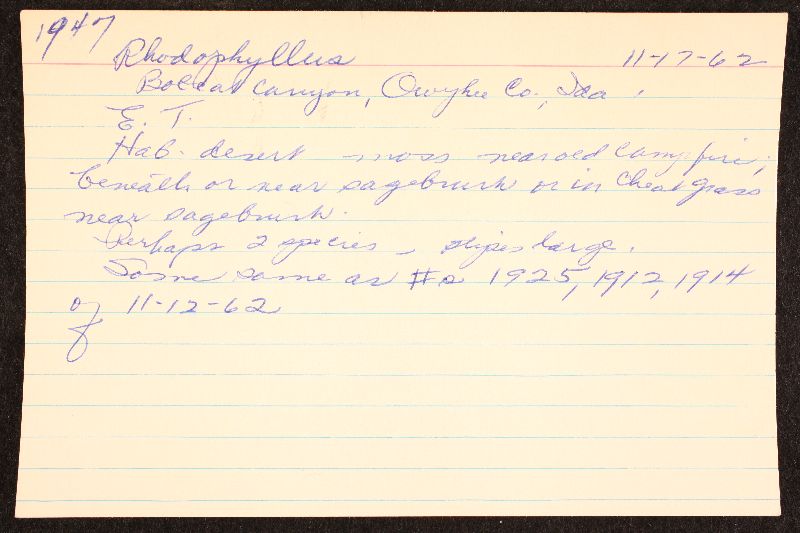 1947
Rhodophyllus 11-17-62
Bobcat Canyon, Owyhee Co., Ida.
E. T.
Hab. desert moss near old campfire;
beneath or near sagebrush or in cheat grass
near sagebrush.
Perhaps 2 species - stipes large.
Some same as #s 1925, 1912, 1914
of 11-12-62